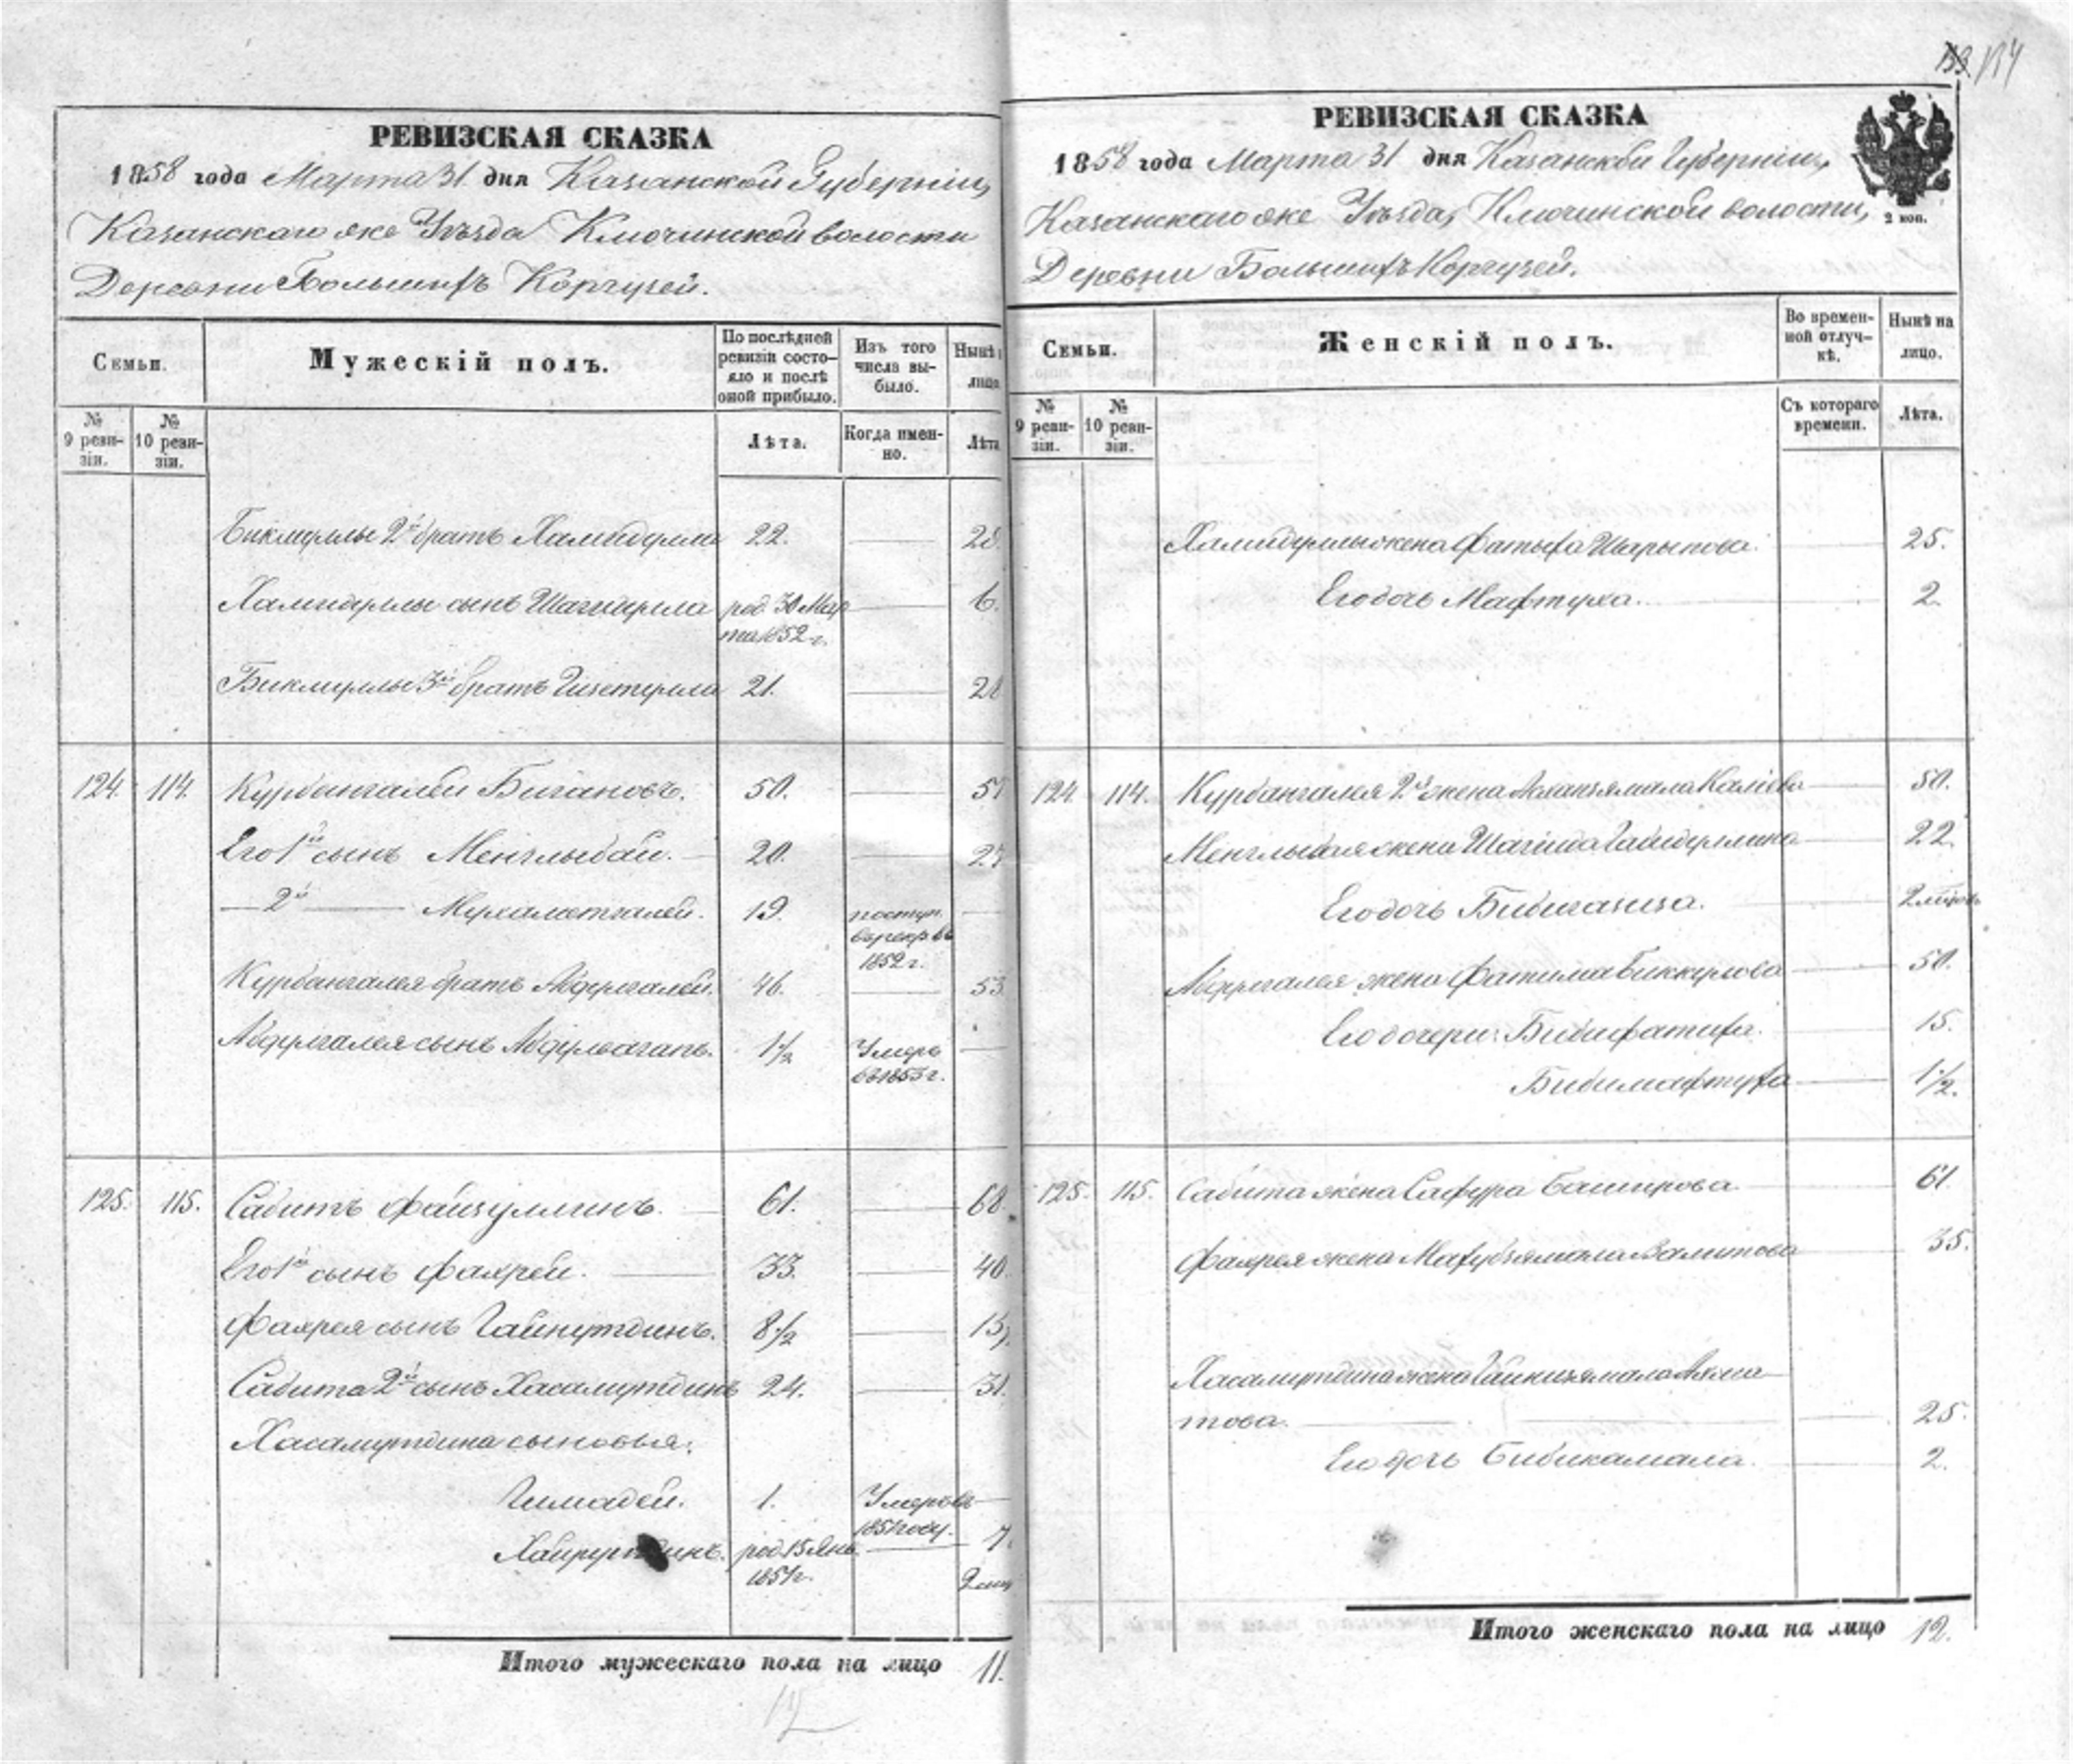 133. 134
РЕВИЗСКАЯ СКАЗКА
1858 года Марта 31 дня Казанской Губерніи,
Казанскаго же Уѣзда Ключинской волости
Деревни Большихъ Коргузей.
Семьи.
Мужескій полъ.
По послѣдней ревизіи состояло и послѣ оной прибыло.
Изъ того числа выбыло.
Нынѣ лицо
№ 9 ревизіи.
№ 10 ревизіи.
Лѣта.
Когда именно.
Лѣта
Бикмуллы 2й братъ Хамидулла 22. 28.
Хамидуллы сынъ Шагидулла род. 30 Мар 6.
та 1852 г.
Бикмуллы 3й братъ Гизетулла 21. 28
124. 114. Курбангалей Бигановъ. 50. 57
Его 1й сынъ Менглыбай. 20. 27
— 2й — Мухаметгалей. 19. поступ.
въ рекр. въ
1852 г.
Курбангалея братъ Абдулгалей. 46. 53
Абдулгалея сынъ Абдулвагапъ. 1 1/2 Умеръ
въ 1853 г.
125. 115. Сабитъ Файзуллинъ. 61. 68
Его 1й сынъ Фахрей. 33. 40.
Фахрея сынъ Гайнутдинъ. 8 1/2 15
Сабита 2й сынъ Хасамутдинъ 24. 31.
Хасамутдина сыновья:
Гимадей. 1. Умеръ въ
1851 году.
Хайрутдинъ. род. 15 Янв. 7.
1851 г. 2
Итого мужескаго пола на лицо 11.
12
РЕВИЗСКАЯ СКАЗКА
1858 года Марта 31 дня Казанской Губерніи,
Казанскаго же Уѣзда, Ключинской волости,
2 коп.
Деревни Большихъ Коргузей.
Семьи.
Женскій полъ.
Во временной отлучкѣ.
Нынѣ на лицо.
№ 9 ревизіи.
№ 10 ревизіи.
Съ котораго времени.
Лѣта.
Хамидуллы жена Фатыха Шарыпова. 25.
Его дочь Мафтуха. 2.
124 114. Курбангалея 2я жена Маханзямала Каліева 50.
Менглыбая жена Шагида Габидуллина 22.
Его дочь Бибигазиза. 2
Абдулгалея жена Фатима Биккулова 50.
Его дочери: Бибифатиха. 15.
Бибимафтуха 1 1/2.
125. 115. Сабита жена Сафура Баширова 61
Фахрея жена Махубзямала Валитова 35.
Хасамутдина жена Гайнизямала Ахме
това. 25.
Его дочь Бибикамала. 2.
Итого женскаго пола на лицо 12.